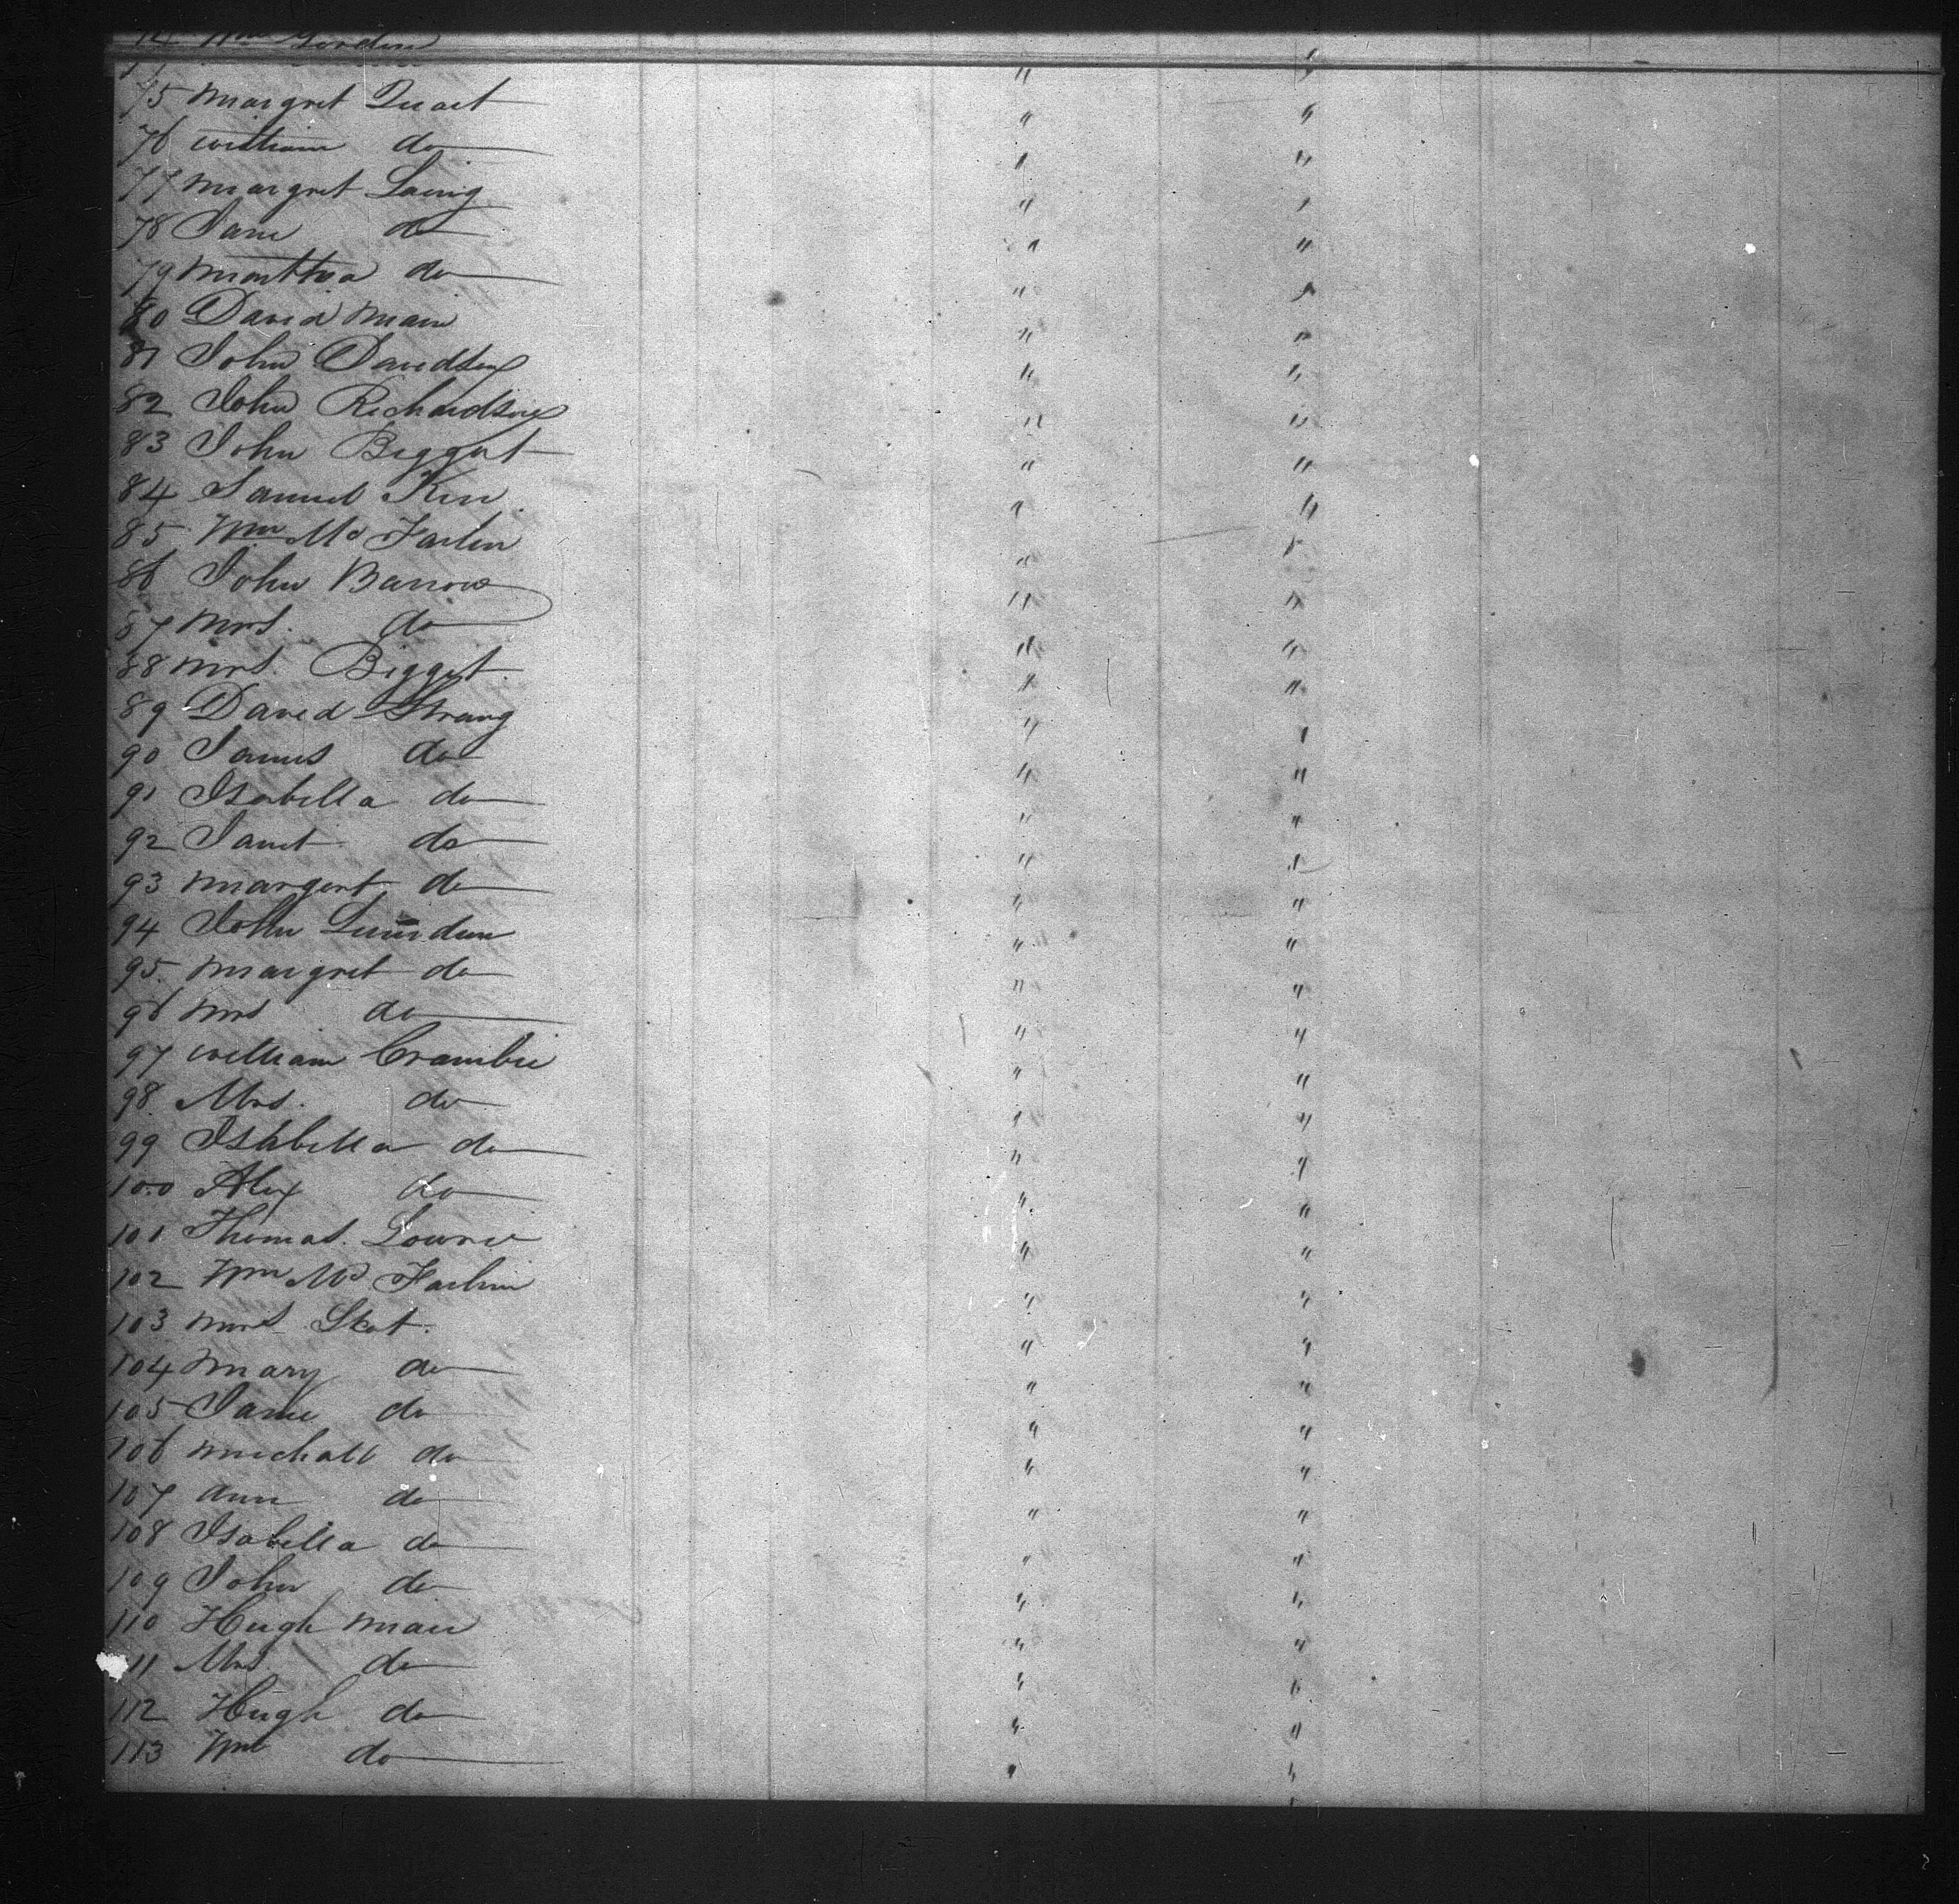 74 Wm Gordon
75 Margret Quart
76 William do
77 Margret Laing
78 Jane do
79 Martha do
80 David Main
81 John Davidson
82 John Richardson
83 John Biggart
84 Samuel Kerr
85 Wm Mc Farlin
86 John Barrow
87 Mrs. do
88 Mrs. Biggart
89 David Strang
90 James do
91 Isabella do
92 Janet do
93 Margert do
94 John Lumsden
95 Margret do
96 Mrs do
97 William Crambie
98 Mrs. do
99 Isabella do
100 Alex do
101 Thomas. Lowrie
102 Wm Mc Farlin
103 Mrs Skot.
104 Mary do
105 Jane do
106 Michall do
107 Ann do
108 Isabella do
109 John do
110 Hugh Mair
11 Mrs do
112 Hugh do
113 Wm do